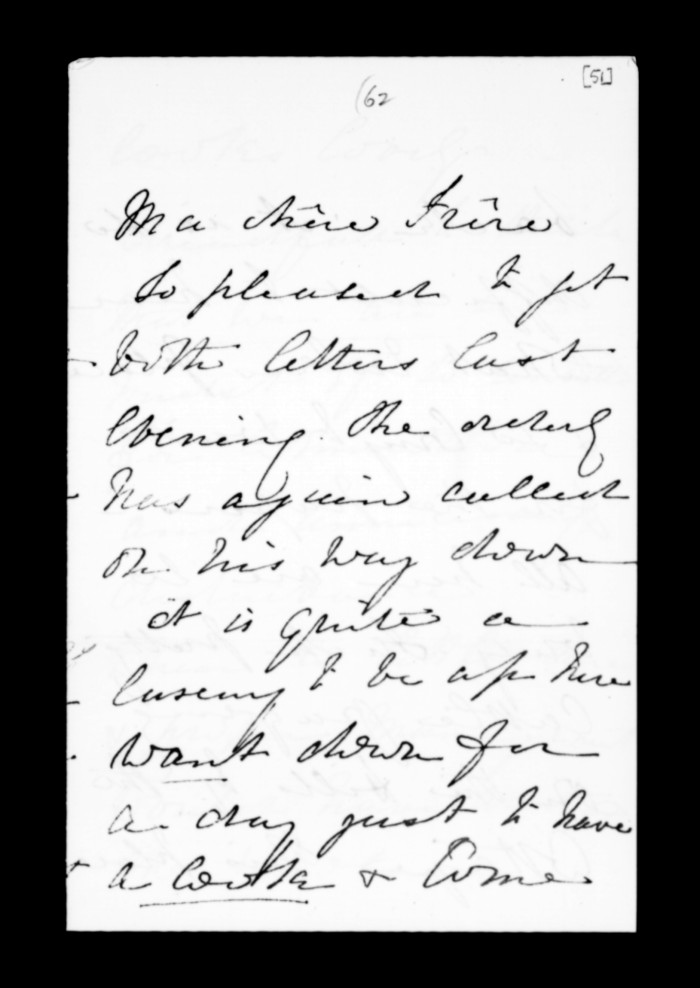 [51]
(62
Ma chère Frère
So pleased to get
both letters last
Evening. The orderly
has again called
on his way down
it is quite a
luxury to be up here
want down for
a day just to have
a look & Come